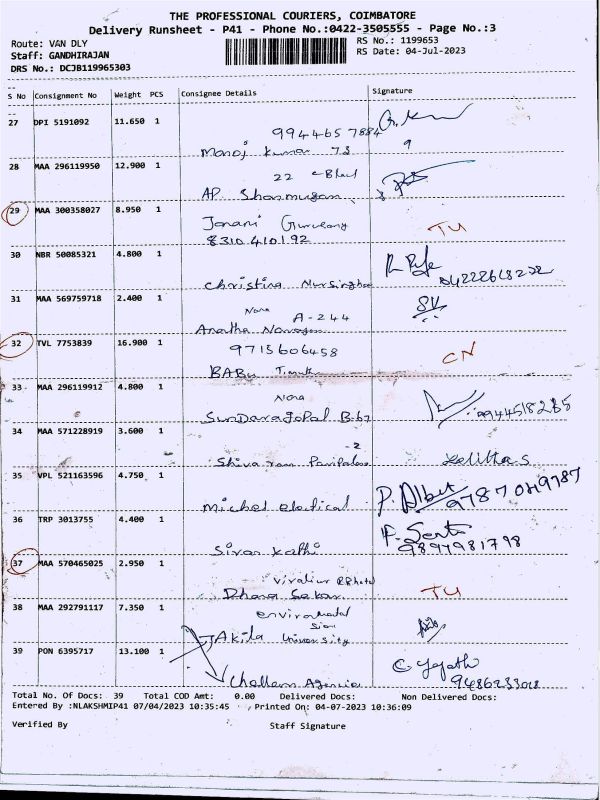 THE PROFESSIONAL COURIERS, COIMBATORE
Delivery Runsheet - P41 - Phone No.:0422-3505555 - Page No.:3
Route: VAN DLY RS No.: 1199653
Staff: GANDHIRAJAN RS Date: 04-Jul-2023
DRS No.: DCJB119965303
S No Consignment No Weight PCS Consignee Details Signature
27 DPI 5191092 11.650 1
9944657884
Manoj Kumar 73 9
28 MAA 296119950 12.900 1
22
AP Shanmugam
29 MAA 300358027 8.950 1
Janani
8310410192 TU
30 NBR 50085321 4.800 1
Christina 04222618222
31 MAA 569759718 2.400 1
A-244
32 TVL 7753839 16.900 1
9715606458 CN
BABu
33 MAA 296119912 4.800 1
SunDaragopal B-67 9944518285
34 MAA 571228919 3.600 1
-2
Shiva ram Lalitha S
35 VPL 521163596 4.750 1
Michel electical P. Albert 9787049787
36 TRP 3013755 4.400 1
Sivan Kathi 9894981798
37 MAA 570465025 2.950 1
Dhana Sekar TU
38 MAA 292791117 7.350 1
Akila University
39 PON 6395717 13.100 1
Challam Agencia 9486233018
Total No. Of Docs: 39 Total COD Amt: 0.00 Delivered Docs: Non Delivered Docs:
Entered By :NLAKSHMIP41 07/04/2023 10:35:45 Printed On: 04-07-2023 10:36:09
Verified By Staff Signature